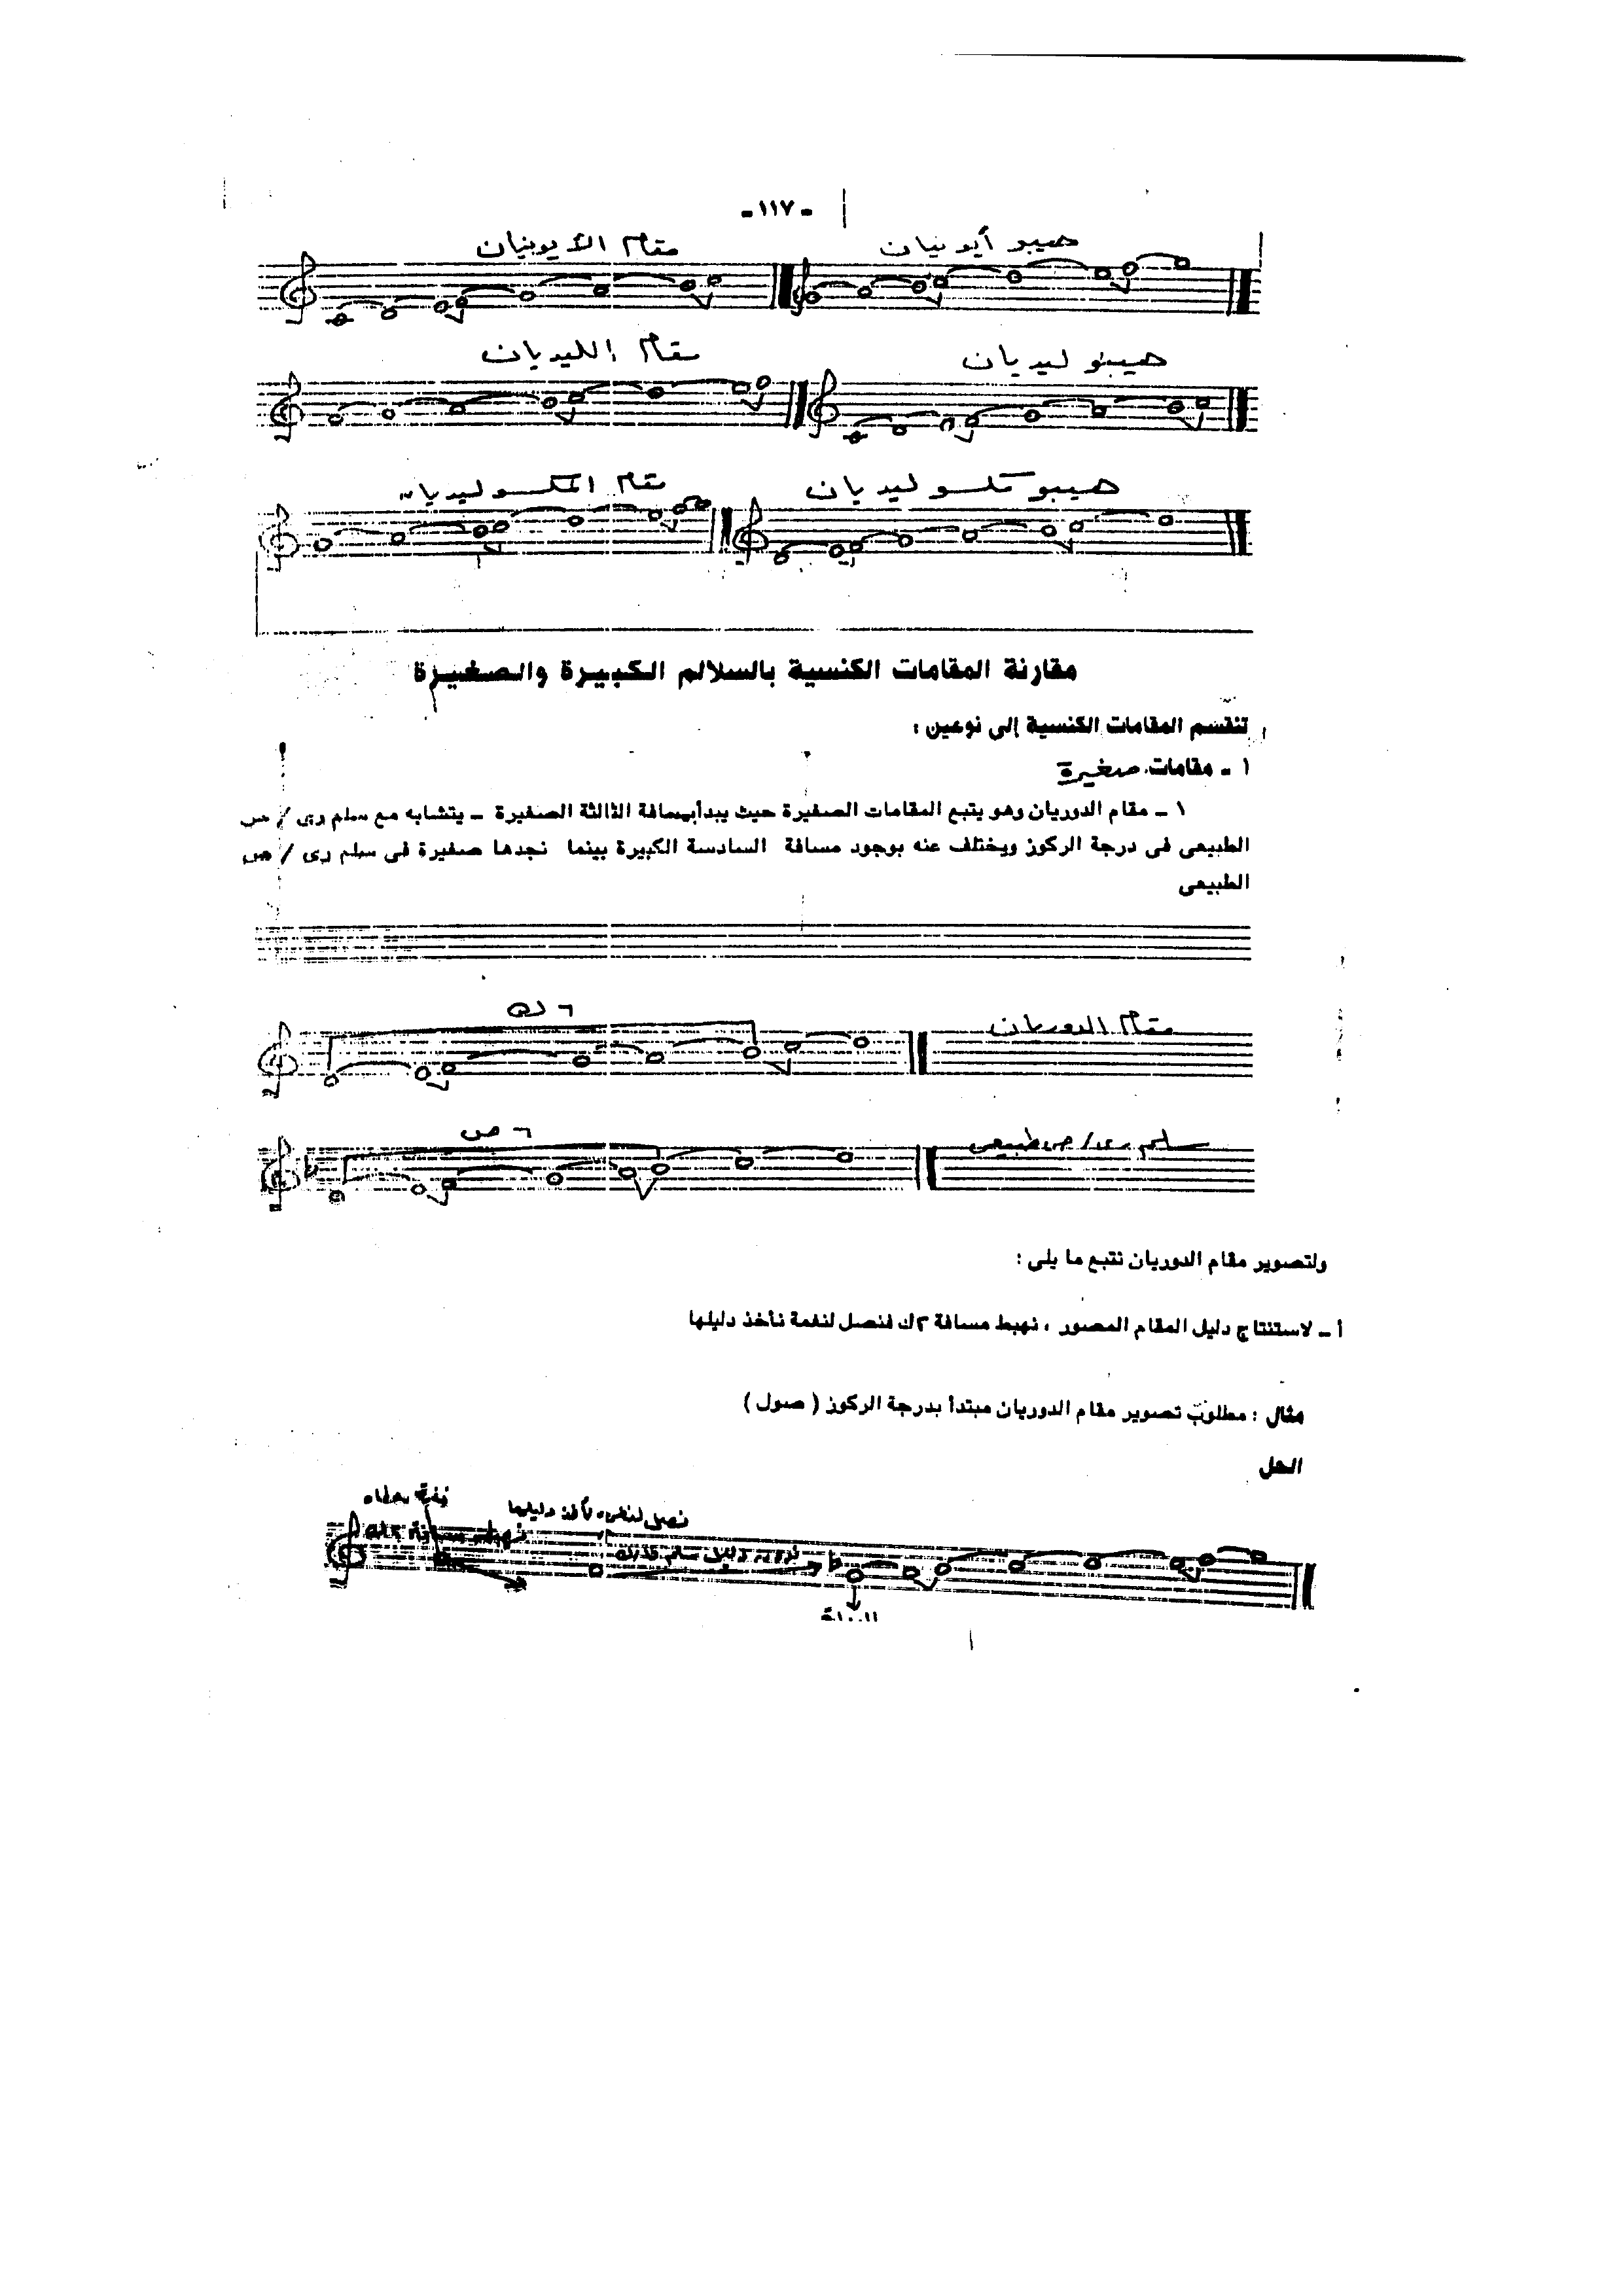 - ١١٧ -
مقام الأيونيان
هيبو أيونيان
مقام الليديان
هيبو ليديان
مقام المكسوليديان
هيبو مكسو ليديان
مقارنة المقامات الكنسية بالسلالم الكبيرة والصغيرة
تنقسم المقامات الكنسية إلى نوعين :
١ - مقامات صغيرة
١ - مقام الدوريان وهو يتبع المقامات الصغيرة حيث يبدأ بمسافة الثالثة الصغيرة - يتشابه مع سلم رى / ص
الطبيعى فى درجة الركوز ويختلف عنه بوجود مسافة السادسة الكبيرة بينما نجدها صغيرة فى سلم رى / ص
الطبيعى
٦ ك
مقام الدوريان
٦ ص
سلم رى / ص طبيعى
ولتصوير مقام الدوريان نتبع ما يلى :
أ - لاستنتاج دليل المقام المصور ، نهبط مسافة ٢ك فنصل لنغمة نأخذ دليلها
مثال : مطلوب تصوير مقام الدوريان مبتدأ بدرجة الركوز ( صول )
الحل
نغمة معطاه
نصل لنغمة نأخذ دليلها
نهبط مسافة ٢ك